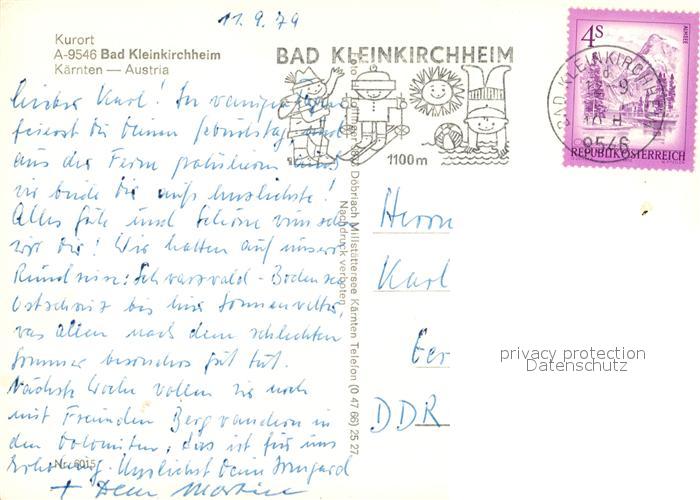 11.9.79
Kurort
A-9546 Bad Kleinkirchheim
Kärnten — Austria
BAD KLEINKIRCHHEIM
1100m
4s
ALMSEE
REPUBLIK ÖSTERREICH
BAD KLEINKIRCHHEIM
9546
Lieber Karl! In wenigen Tagen
feierst du Deinen Geburtstag, und
aus der Ferne gratulieren
wir beide Dir aufs herzlichste!
Alles Gute und Schöne wünschen
wir Dir! Wir hatten auf unserer
Rundreise: Schwarzwald - Bodensee
Ostschweiz bis hier Sonnenwetter,
was allen nach dem schlechten
Sommer besonders gut tut.
Nächste Woche wollen wir noch
mit Freunden Bergwandern in
den Dolomiten, das ist für uns
Erholung. Herzlichst Deine Irmgard
+ Dein Martin
Nr. 6015
Döbriach Millstättersee Kärnten Telefon (0 47 66) 25 27
Nachdruck verboten
Herrn
Karl
Ger
DDR
privacy protection
Datenschutz